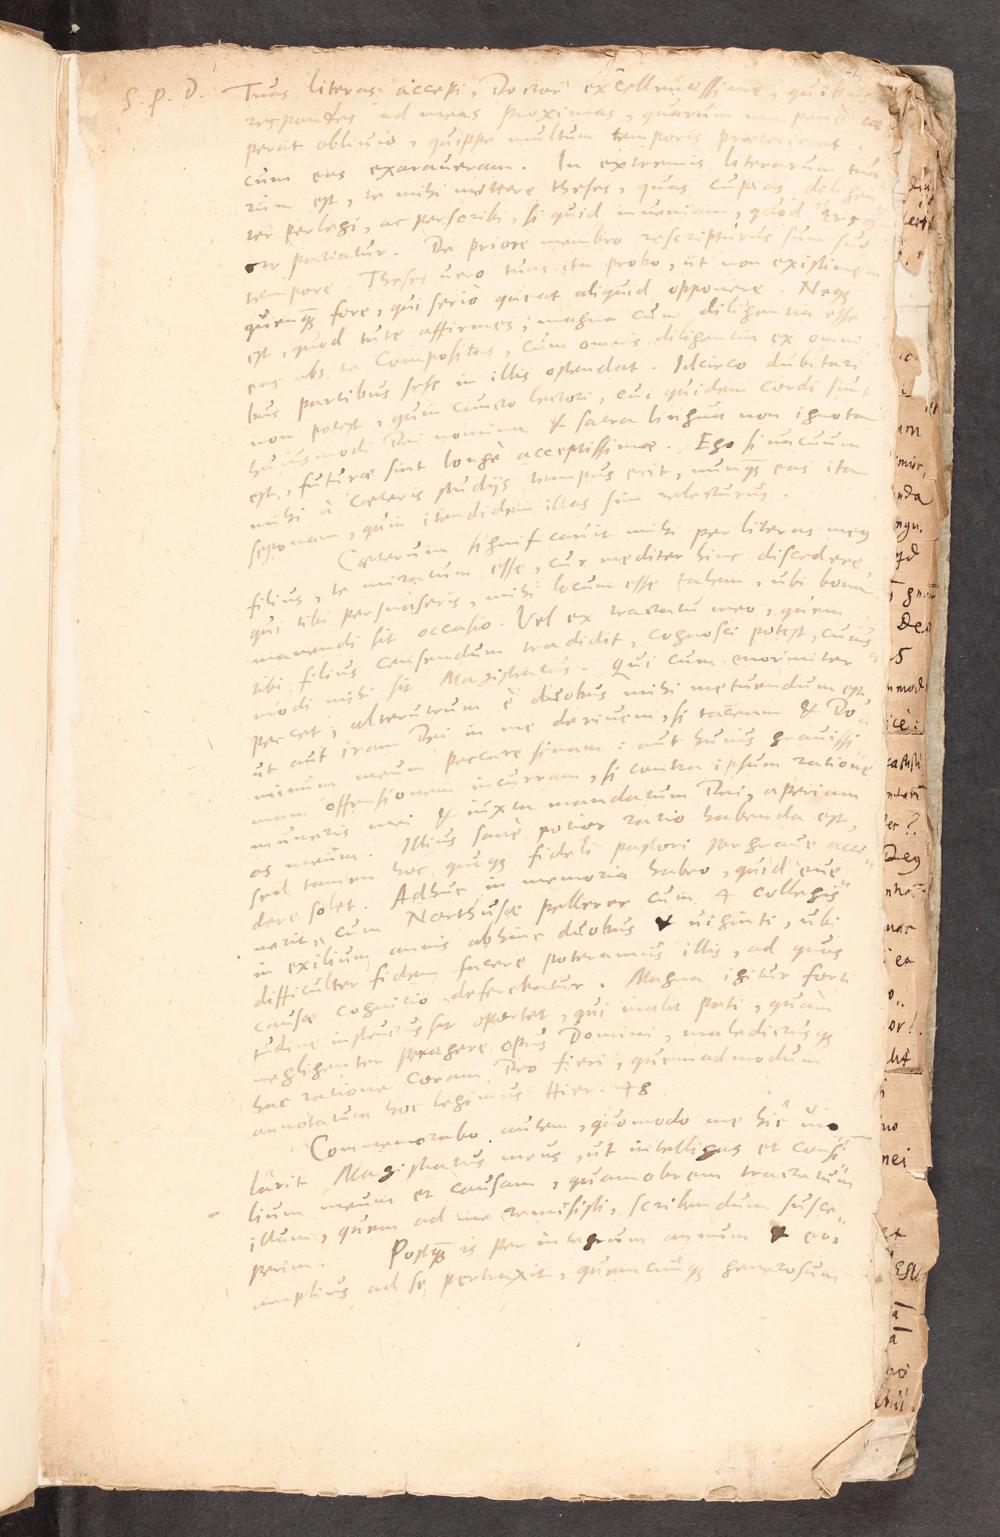 S. P. D. Tuas literas accepi, Doctor excellentissime, quibus
respondes ad meas proximas, quarum me penè
perat obliuio, quippe multum temporis praeterierat,
cum eas exaraueram. In extremis literarum tua
rum est, te mihi mittere theses, quas cupias diligen
ter perlegi, ac perscribi, si quid inueniam, quod
patiatur. De priore membro rescripturus sum suo
tempore. Theses uero tuas ita probo, ut non existimem
quenq̃ fore, qui serio queat aliquid opponere. Neq̃
est, quod tute affirmes, magna cum diligentia esse
eas abs te compositas, cum omnis diligentia ex omni
bus partibus sese in illis ostendat. Idcirco dubitari
non potest, quin cuncto lectori, cui quidem cordi sunt
huiusmodi Dei nomina & sacra lingua non ignota
est, futurae sint longè acceptissimae. Ego si uacuum
mihi à caeteris studijs tempus erit, nunq̃ eas ita
seponam, quin identidem illas sim relecturus.
Caeterum significauit mihi per literas meq
filius, te miratum esse, cur mediter hinc discedere,
qui tibi persuaseris, mihi locum esse talem, ubi bona
manendi sit occasio. Vel ex tractatu meo, quem
tibi filius censendum tradidit, cognosci potest, cuius
modi mihi sit Magistratus. Qui cum enormiter
peccet, alterutrum è duobus mihi metuendum est,
ut aut iram Dei in me deriuem, si taceam & Do
minum meum peccare sinam: aut huius grauissi
mam offensionem incurram, si contra ipsum ratione
muneris mei & iuxta mandatum Dei, aperiam
os meum. Illius sanè potior ratio habenda est,
sed tamen hoc quoq̃ fideli pastori pergraue acci
dere solet. Adhuc in memoria habeo, quid eue
nerit, cum Northusae pellerer cum 4 collegis
in exilium annis abhinc duobus & uiginti, ubi
difficulter fidem facere poteramus illis, ad quos
causae cognitio deferebatur. Magna igitur forti
tudine instructus sit oportet, qui malit pati, quàm
negligenter peragere opus Domini, maledictusq̃
hac ratione coram Deo fieri, quemadmodum
annotatum hoc legimus Hier. 48.
Commemorabo autem, quomodo me hic
Magistratus meus, ut intelligas et consi
lium meum et causam, quamobrem tractatum
illum, quem ad me remisisti, scribendum susce
perim. Postq̃ is per integrum annum & eo
amplius ad se pertraxit, quemcunq̃ generosum